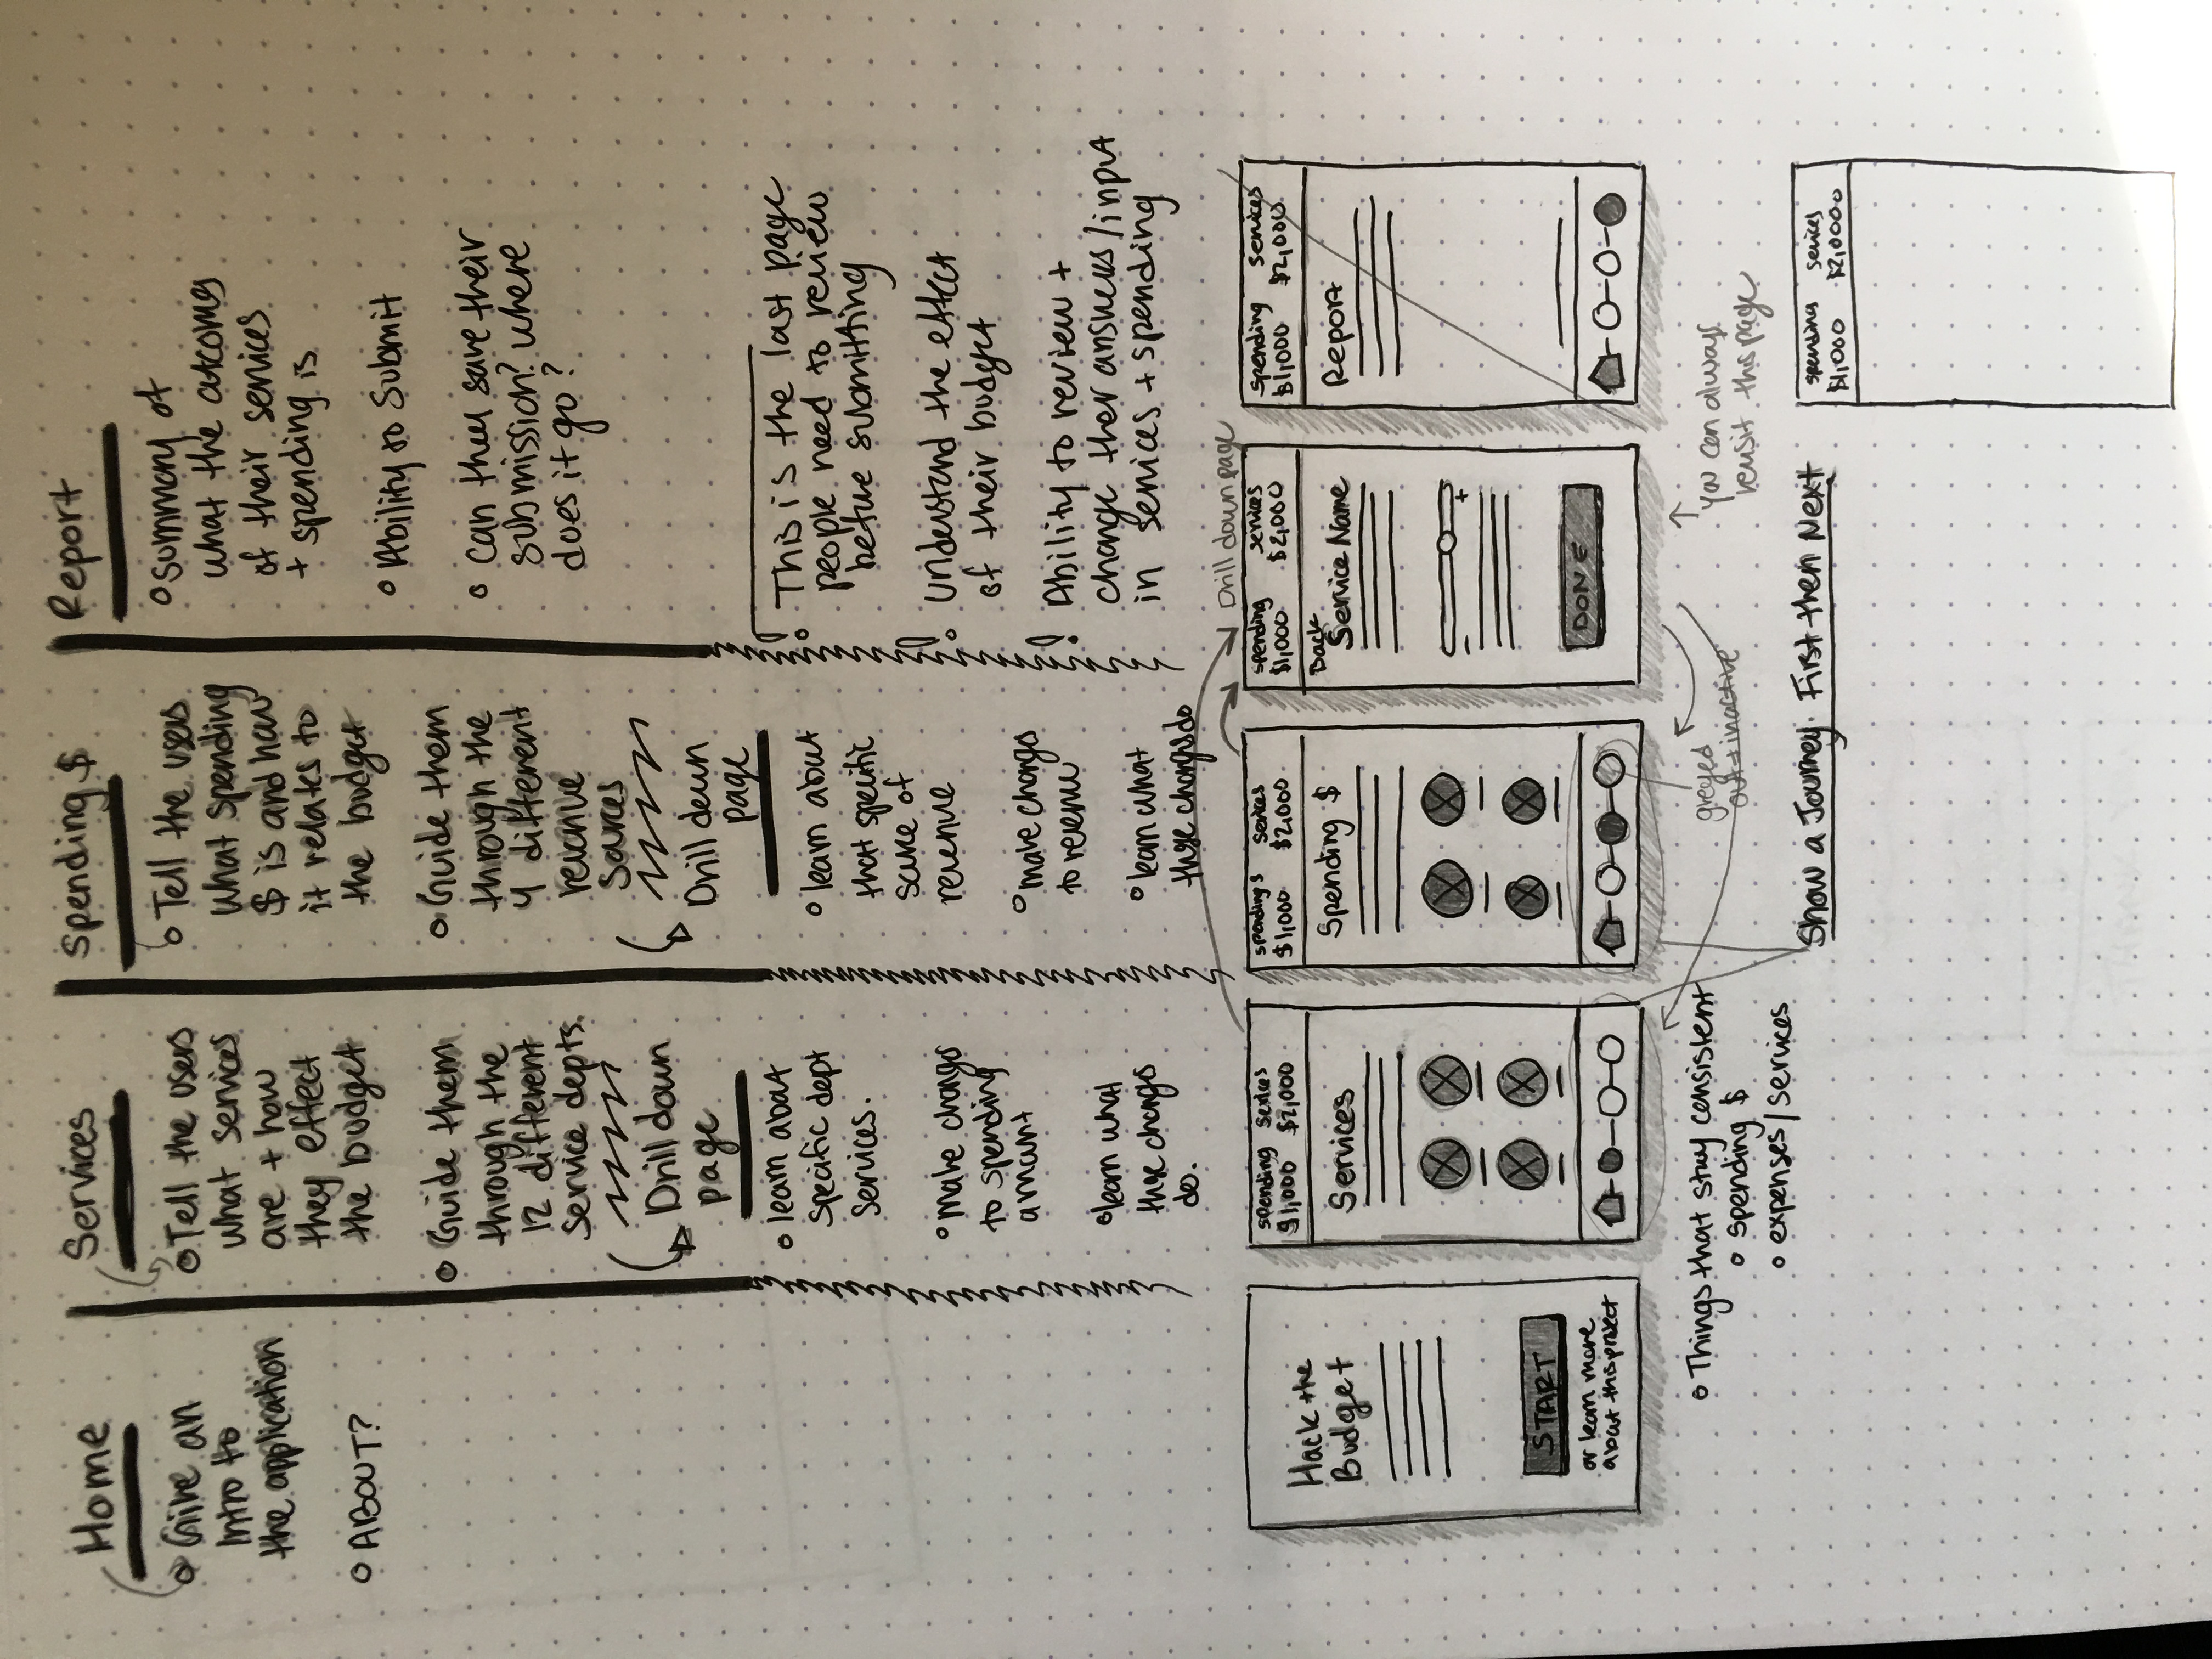 Home
Give an
Intro to
the application
ABOUT?
Services
Tell the users
what services
are + how
they effect
the budget
Guide them
through the
12 different
service depts.
Drill down
page
learn about
specific dept
services.
make changes
to spending
amount
learn what
those changes
do.
Spending $
Tell the users
what spending
$ is and how
it relates to
the budget
Guide them
through the
4 different
revenue
sources
Drill down
page
learn about
that specific
source of
revenue
make changes
to revenue
learn what
those changes do
Report
Summary of
what the outcomes
of their services
+ spending is
Ability to Submit
can they save their
submission? where
does it go?
! This is the last page
people need to review
before submitting
! Understand the effect
of their budget
! Ability to review +
change ther answers/input
in services + spending
Drill down page
Hack the
Budget
START
or learn more
about this project
spending services
$1,000 $2,000
Services
spending $ services
$1,000 $2,000
Spending $
spending services
$1,000 $2,000
Back
Service Name
- +
DONE
spending services
$1,000 $2,000
Report
Things that stay consistent
spending $
expenses/services
greyed
out + inactive
you can always
revisit this page
Show a Journey. First then Next
spending services
$1,000 $2,0000